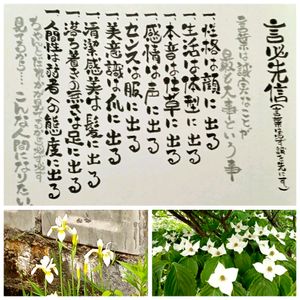 言必先信(言葉は必ず誠を先にす)
言葉は誠実なことが
最も大事という事
一、性格は顔に出る
一、生活は体型に出る
一、本音は仕草に出る
一、感情は声に出る
一、センスは服に出る
一、美意識は爪に出る
一、清潔感は髪に出る
一、落ち着きの無さは足に出る
一、人間性は弱者への態度に出る
見てるから…こんな人間になりたい。